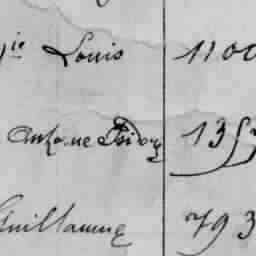 Louis 1100
Antoine Isidore 135
Guillaume 793